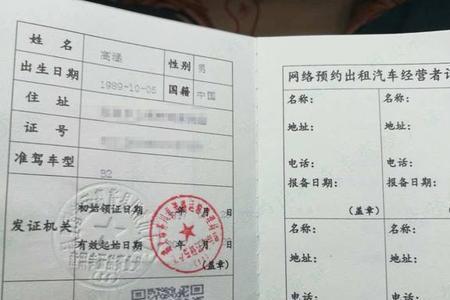 姓名 高涵 性别 男
出生日期 1989-10-05 国籍 中国
住址
证号
准驾车型 B2
发证机关
初始领证日期 年 月 日
有效起始日期 年 月 日
(盖章)
网络预约出租汽车经营者
名称: 名称:
地址: 地址:
电话: 电话:
报备日期: 报备日期:
(盖章)
名称: 名称:
地址: 地址: